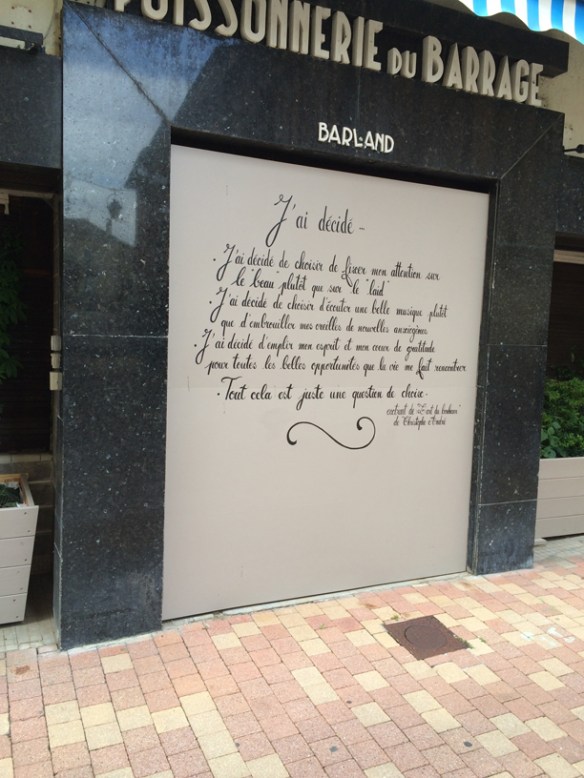 POISSONNERIE DU BARRAGE
BARLAND
J'ai décidé -
. J'ai décidé de choisir de fixer mon attention sur
le "beau" plutôt que sur le "laid"
. J'ai décidé de choisir d'écouter une belle musique plutôt
que d'embrouiller mes oreilles de nouvelles anxiogènes
. J'ai décidé d'emplir mon esprit et mon coeur de gratitude
pour toutes les belles opportunités que la vie me fait rencontrer
. Tout cela est juste une question de choix -
extrait de "L'art du bonheur"
de Christophe André